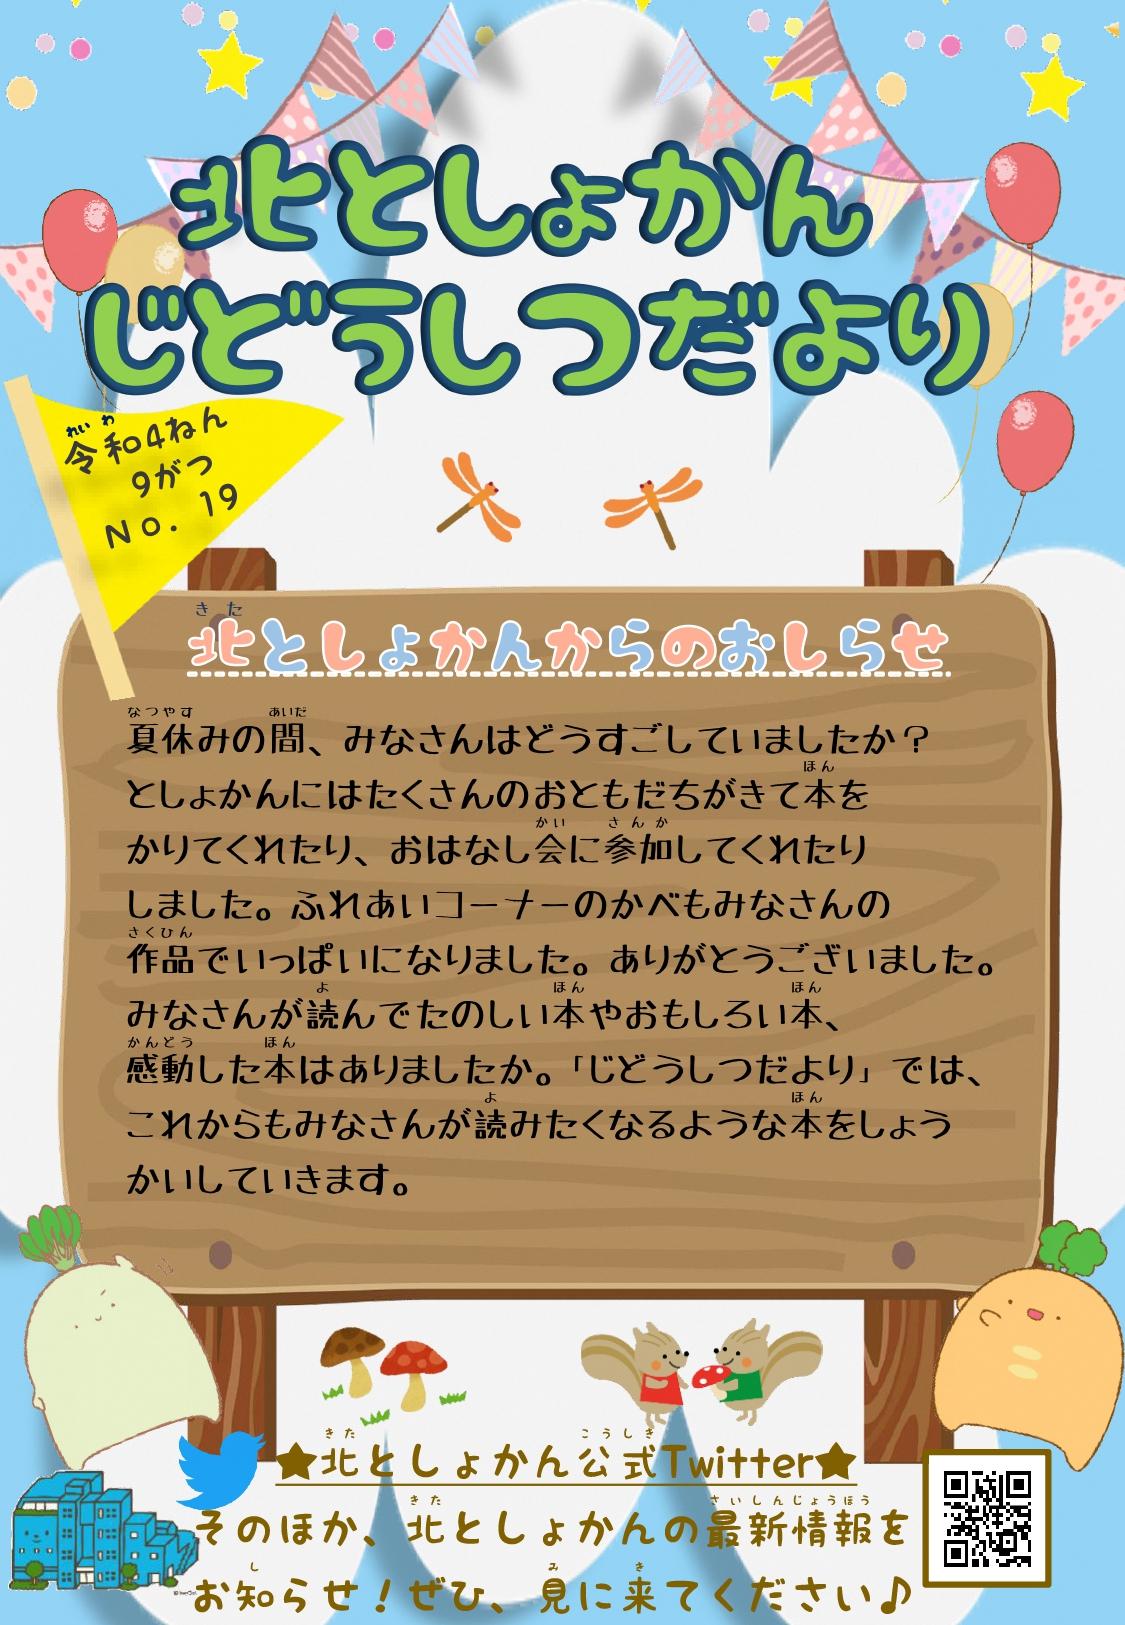 北としょかん
じどうしつだより
れいわ
令和4ねん
9がつ
No. 19
きた
北としょかんからのおしらせ
なつやす あいだ
夏休みの間、みなさんはどうすごしていましたか？
ほん
としょかんにはたくさんのおともだちがきて本を
かい さんか
かりてくれたり、おはなし会に参加してくれたり
しました。ふれあいコーナーのかべもみなさんの
さくひん
作品でいっぱいになりました。ありがとうございました。
よ ほん ほん
みなさんが読んでたのしい本やおもしろい本、
かんどう ほん
感動した本はありましたか。「じどうしつだより」では、
よ ほん
これからもみなさんが読みたくなるような本をしょう
かいしていきます。
きた こうしき
★北としょかん公式Twitter★
きた さいしんじょうほう
そのほか、北としょかんの最新情報を
し み き
お知らせ！ぜひ、見に来てください♪